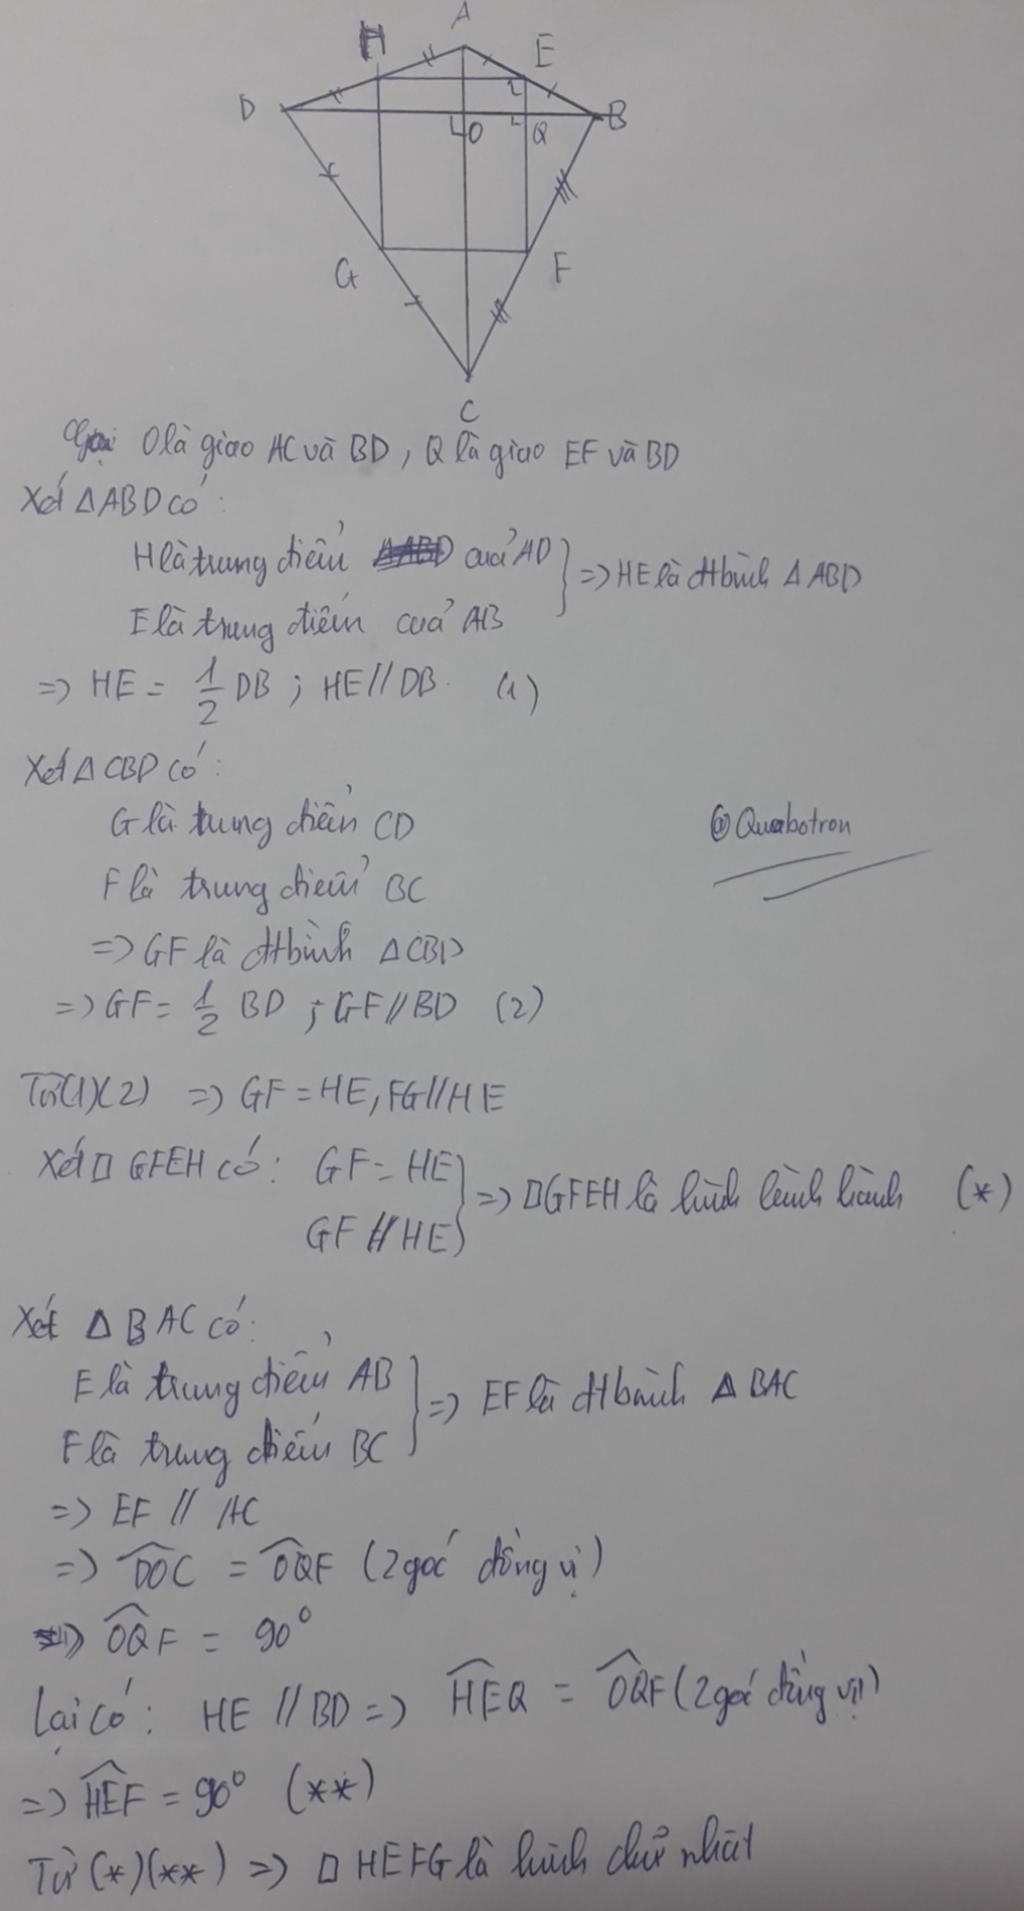 A
H
E
D
O
Q
B
G
F
C
Gọi O là giao AC và BD, Q là giao EF và BD
Xét △ABD có:
H là trung điểm của AD
E là trung điểm của AB
} => HE là đtbình △ABD
=> HE = 1/2 DB ; HE // DB. (1)
Xét △CBD có:
G là trung điểm CD
@Quabotron
F là trung điểm BC
=> GF là đtbình △CBD
=> GF = 1/2 BD ; GF // BD (2)
Từ (1)(2) => GF = HE, FG // HE
Xét □ GFEH có: GF = HE
GF // HE
} => □GFEH là hình bình hành (*)
Xét △BAC có:
E là trung điểm AB
F là trung điểm BC
} => EF là đtbình △BAC
=> EF // AC
=> DOC = OQF (2 góc đồng vị)
=> OQF = 90°
Lại có: HE // BD => HEQ = OQF (2 góc đồng vị)
=> HEF = 90° (**)
Từ (*)(**) => □ HEFG là hình chữ nhật